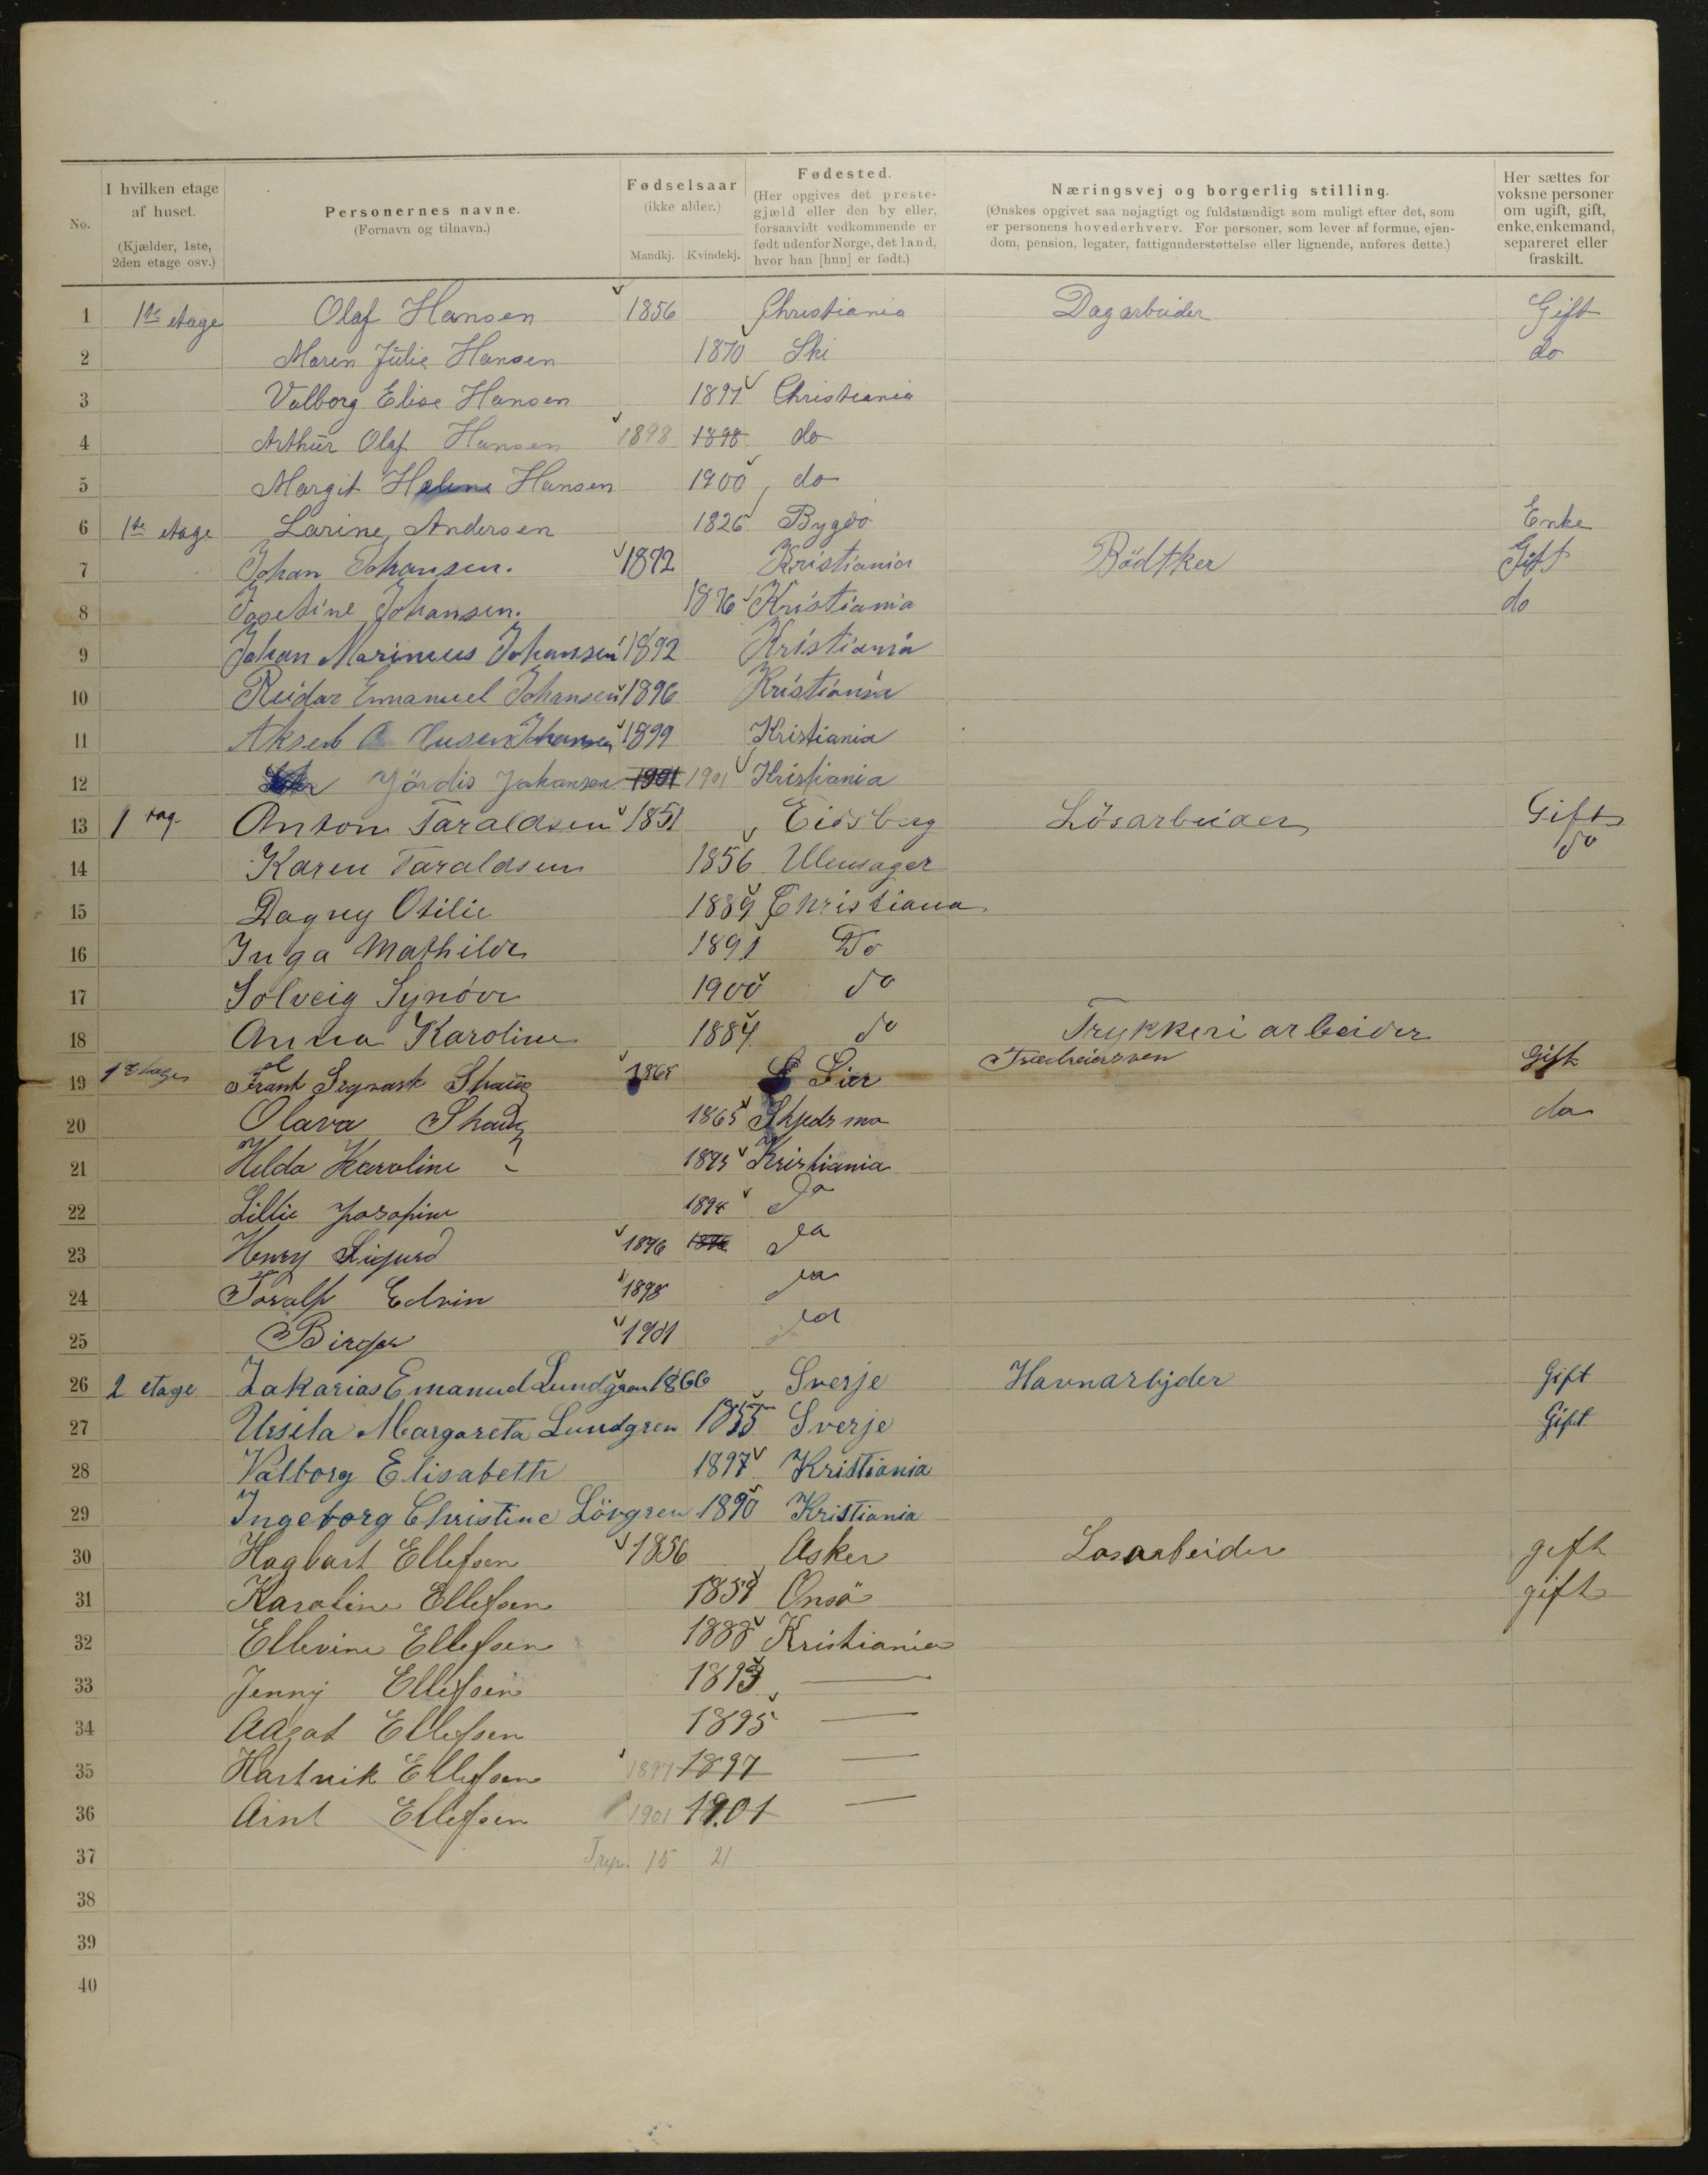 No. I hvilken etage af huset. (Kjælder, 1ste, 2den etage osv.) Personernes navne. (Fornavn og tilnavn.) Fødselsaar (ikke alder.) Mandkj. Kvindekj. Fødested. (Her opgives det prestegjæld eller den by eller, forsaavidt vedkommende er født udenfor Norge, det land, hvor han [hun] er født.) Næringsvej og borgerlig stilling. (Ønskes opgivet saa nøjagtigt og fuldstændigt som muligt efter det, som er personens hovederhverv. For personer, som lever af formue, ejendom, pension, legater, fattigunderstøttelse eller lignende, anføres dette.) Her sættes for voksne personer om ugift, gift, enke, enkemand, separeret eller fraskilt.
1 1ste etage Olaf Hansen 1856 Christiania Dagarbeider Gift
2 Maren Julie Hansen 1870 Ski do
3 Valborg Elise Hansen 1897 Christiania
4 Arthur Olaf Hansen 1898 1898 do
5 Margit Helene Hansen 1900 do
6 1ste etage Larine Andersen 1826 Bygdø Enke
7 Johan Johansen. 1872 Kristiania Bödtker Gift
8 Josefine Johansen. 1876 Kristiania do
9 Johan Marinius Johansen 1892 Kristiania
10 Reidar Emanuel Johansen 1896 Kristiania
11 Aksel Johansen 1899 Kristiania
12 Jördis Johansen 1901 1901 Kristiania
13 1 etag Anton Taraldsen 1851 Eidsberg Lösarbeider Gift
14 Karen Taraldsen 1856 Ullensager do
15 Dagny Otilie 1889 Christiana
16 Inga Mathilde 1891 Do
17 Solveig Synöve 1900 do
18 Anna Karoline 1884 do Trykkeriarbeider
19 1 etage Sigvart Skaug 1868 Lier Gift
20 Olava Skaug 1865 Skjedsmo do
21 Hilda Karoline 1893 Kristiania
22 Lillie Josefine 1894 do
23 Henry Sigurd 1896 1896 do
24 Toralf Edvin 1898 do
25 Birger 1901 do
26 2 etage Zakarias Emanuel Lundgren 1866 Sverje Havnarbjder Gift
27 Ursila Margareta Lundgren 1855 Sverje Gift
28 Valborg Elisabeth 1897 Kristiania
29 Ingeborg Christine Lövgren 1890 Kristiania
30 Hagbart Ellefsen 1856 Asker Losarbeider gift
31 Karoline Ellefsen 1859 Onsö gift
32 Ellevine Ellefsen 1888 Kristiania
33 Jenny Ellefsen 1893 —
34 Aagot Ellefsen 1895 —
35 Hartvik Ellefsen 1897 1897 —
36 Arnt Ellefsen 1901 1901 —
37 15 21
38
39
40